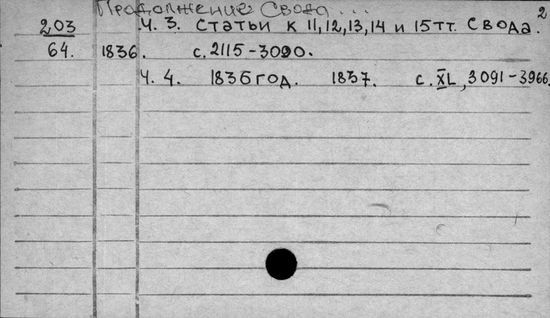 Продолжение Свода... 2
203 Ч. 3. Статьи к 11,12,13,14 и 15 тт. Свода.
64. 1836. с. 2115-3090.
Ч. 4. 1836 год. 1837. с. XL, 3091-3966.